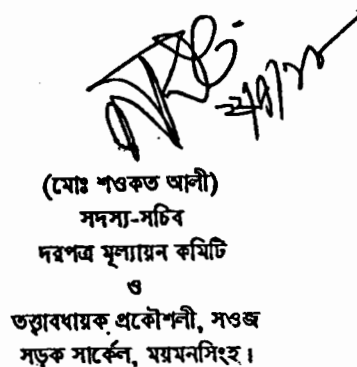 (মোঃ শওকত আলী)
সদস্য-সচিব
দরপত্র মূল্যায়ন কমিটি
ও
তত্ত্বাবধায়ক প্রকৌশলী, সওজ
সড়ক সার্কেল, ময়মনসিংহ।